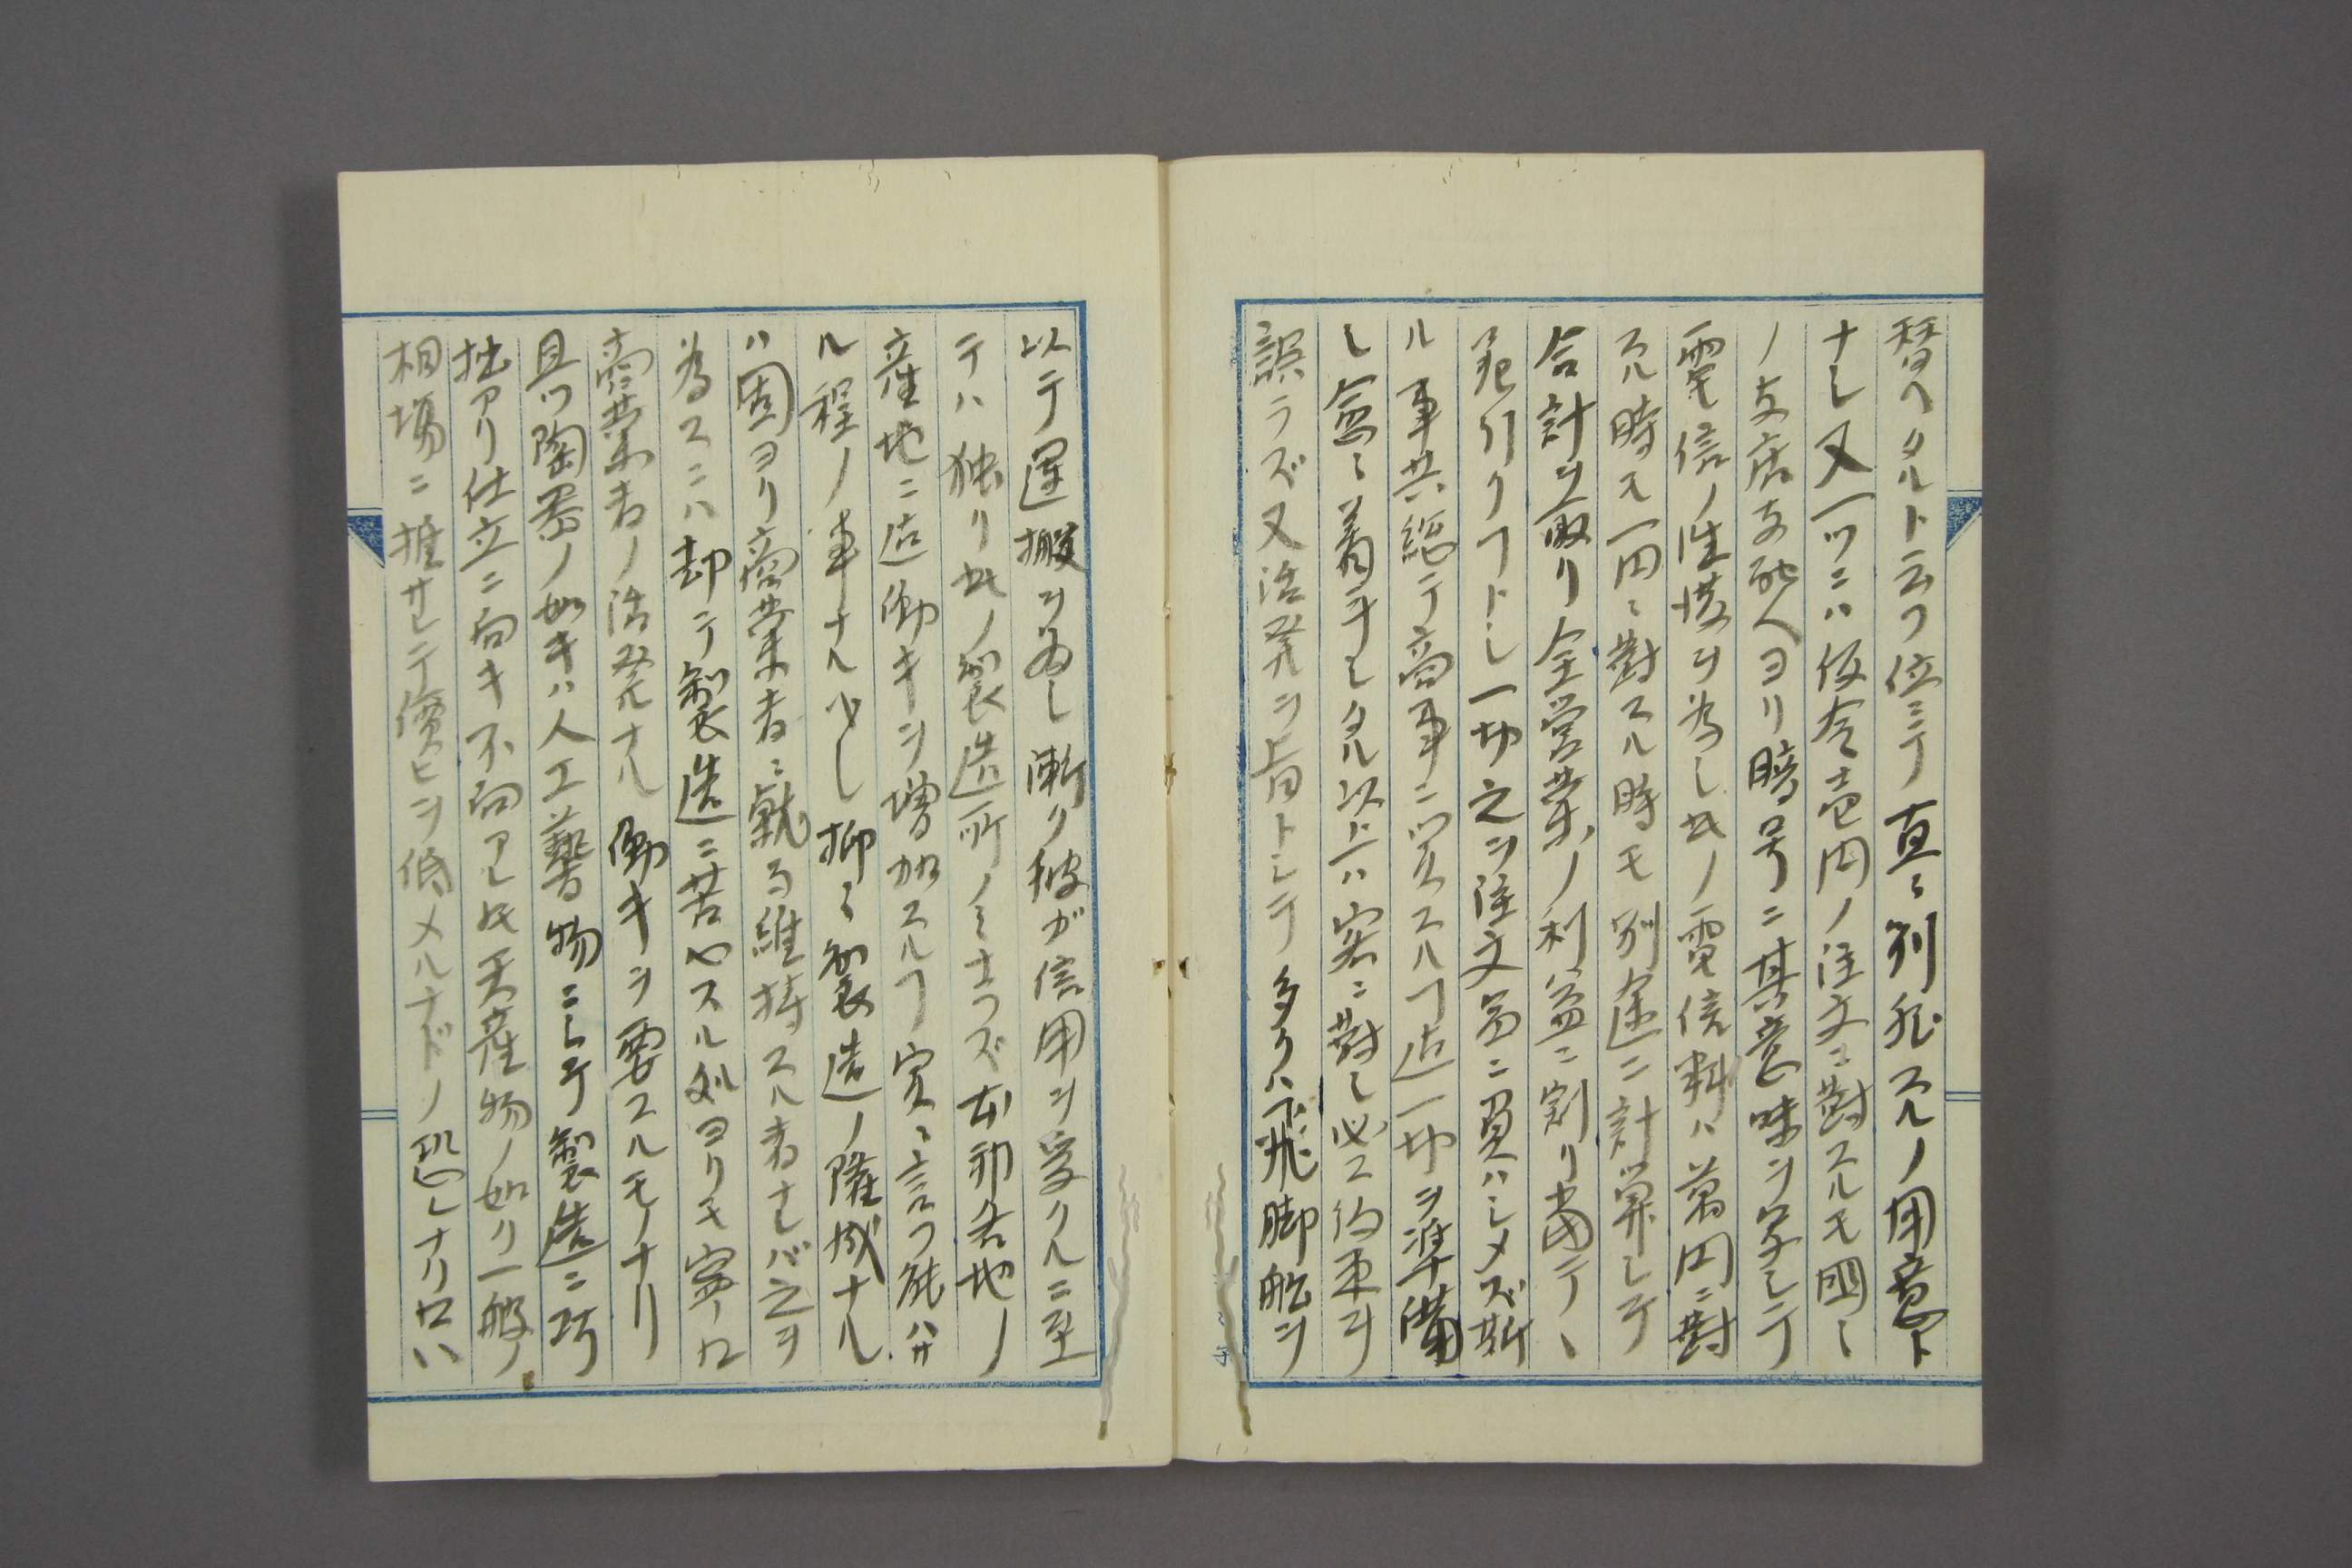 替ヘタルト云フ位ニテ直ニ別飛スルノ用意ト
ナレ又一ツニハ仮令壱円ノ注文ニ對スルモ四々
ノ支店支配人ヨリ暗号ニ其意味ヲ字シテ
電信ノ往復ヲ為し其ノ電信料ハ萬円ニ對
スル時モ一円ニ對スル時モ別途ニ計算シテ
合計ヲ取リ全営業ノ利益ニ割リ当テヽ
差引クヿトし一切之ヲ注文者ニ負ハシメズ斯
ル事共総テ商事ニ関スルヿ迄一切ヲ準備
し愈々着手シタル以上ハ客ニ對し必ス約束ヲ
誤ラズ又活発ヲ旨トシテ多クハ飛脚船ヲ
以テ運搬ヲ為し漸ク彼ガ信用ヲ受クルニ至
テハ独リ其ノ製造所ノミナラズ本邦各地ノ
産地ニ迄働キヲ増加スルヿ実ニ言フ能ハザ
ル程ノ事ナルべし抑々製造ノ隆成ナル
ハ固ヨリ商業者ニ就る維持スル者ナレバ之ヲ
為スニハ却テ製造ニ苦心スル処ヨリモ寧ロ
商業者ノ活発ナル働キヲ要スルモノナリ
且ツ陶器ノ如キハ人工藝物ニシテ製造ニ巧
拙アリ仕立ニ向キ不向アレ共天産物ノ如ク一般ノ
相場ニ推サレテ價ヒヲ低メルナドノ恐レナケレハ